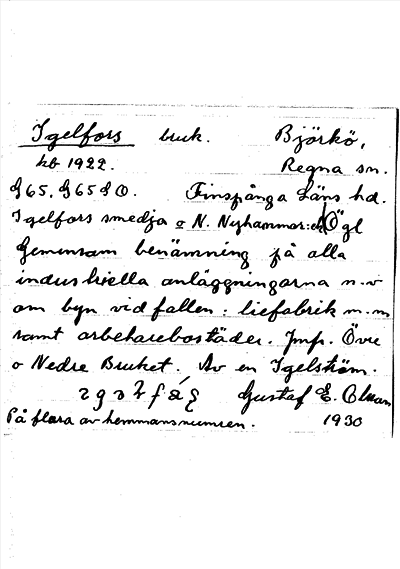 Igelfors bruk. Björkö,
hb 1922. Regna sn.
G65, G65 SO. Finspånga Läns hd.
Igelfors smedja o N. Nyhammar: Ögl
Gemensam benämning på alla
industriella anläggningarna n.v
om byn vid fallen: liefabrik m.m
samt arbetarebostäder. Jmf. Övre
o Nedre Bruket. Av en Igelström.
Gustaf E. Olsson
På flera av hemmansnumren. 1930